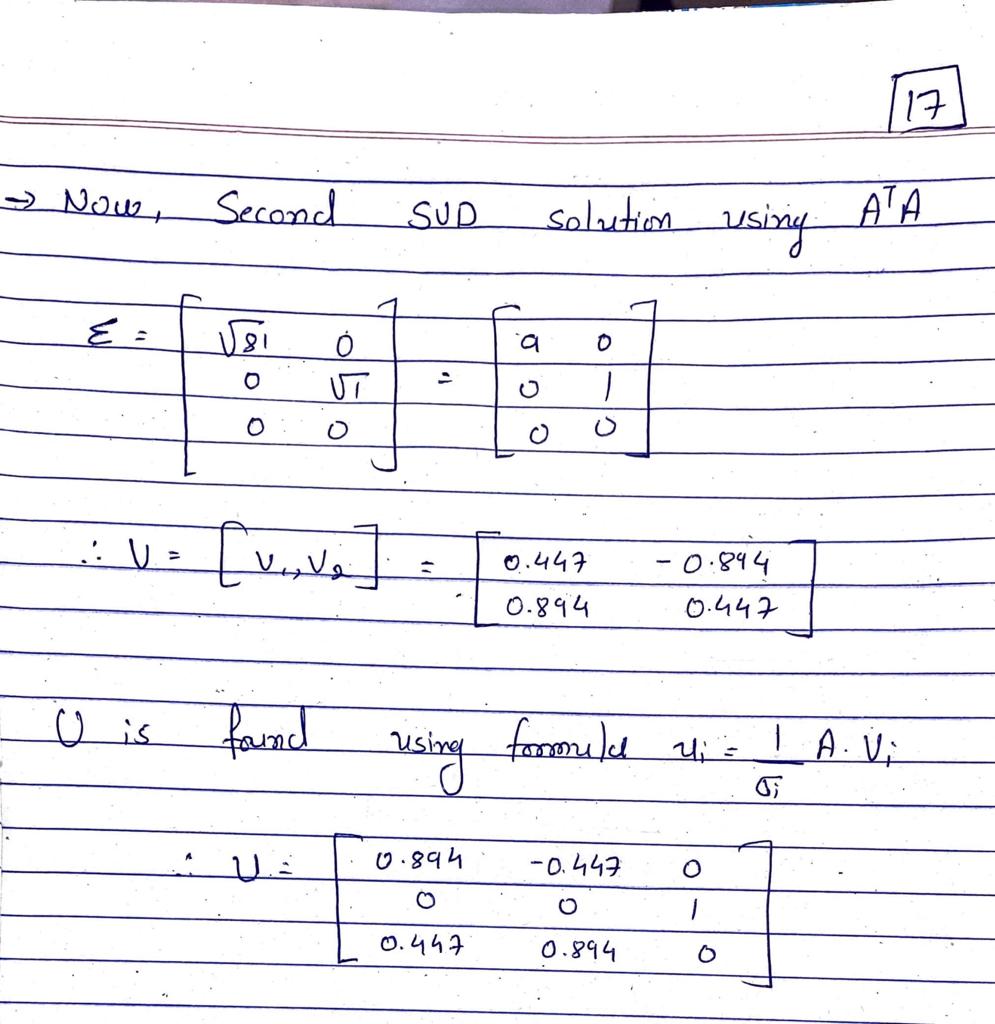 17
→ Now, Second SVD solution using AᵀA
Σ = [ √81 0 ; 0 √1 ; 0 0 ] = [ 9 0 ; 0 1 ; 0 0 ]
∴ V = [ V₁, V₂ ] = [ 0.447 -0.894 ; 0.894 0.447 ]
U is found using formula uᵢ = 1/σᵢ A. Vᵢ
∴ U = [ 0.894 -0.447 0 ; 0 0 1 ; 0.447 0.894 0 ]